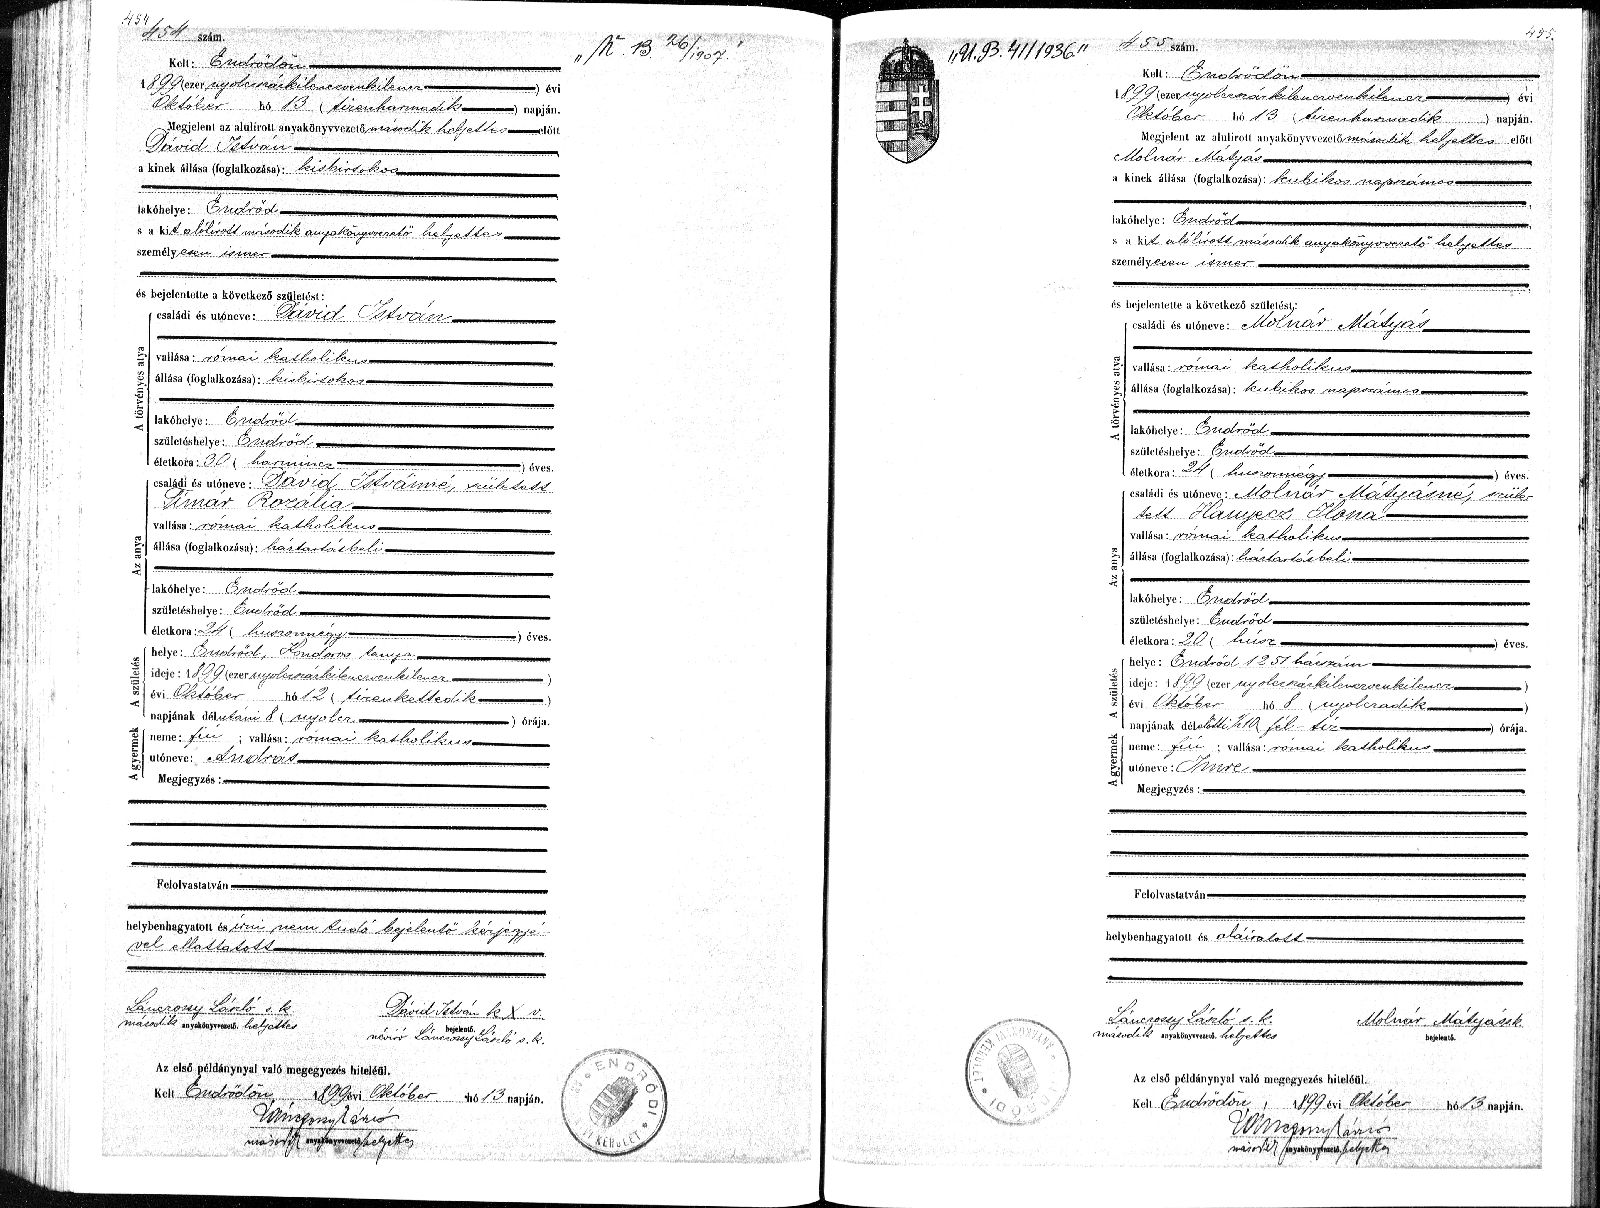 454
454 szám.
"N. B. 26/1907"
Kelt: Endrődön
1899 (ezer nyolczszázkilenczvenkilencz) évi
Október hó 13 (tizenharmadik) napján.
Megjelent az alulírott anyakönyvvezető második helyettes előtt
Dávid István
a kinek állása (foglalkozása): kisbirtokos
lakóhelye: Endrőd
s a kit alólírott második anyakönyvvezető helyettes
személyesen ismer
és bejelentette a következő születést:
A törvényes atya
családi és utóneve: Dávid István
vallása: római katholikus
állása (foglalkozása): kisbirtokos
lakóhelye: Endrőd
születéshelye: Endrőd
életkora: 30 (harmincz) éves.
Az anya
családi és utóneve: Dávid Istvánné, született
Tímár Rozália
vallása: római katholikus
állása (foglalkozása): háztartásbeli
lakóhelye: Endrőd
születéshelye: Endrőd
életkora: 24 (huszonnégy) éves.
A születés
helye: Endrőd, Kondoros tanya
ideje: 1899 (ezer nyolczszázkilenczvenkilencz)
évi Október hó 12 (tizenkettedik)
napjának délutáni 8 (nyolcz) órája.
A gyermek
neme: fiú; vallása: római katholikus
utóneve: András
Megjegyzés:
Felolvastatván
helybenhagyatott és írni nem tudó bejelentő kézjegyé-
vel elláttatott
Lánczossy László s. k. Dávid István k X v.
második anyakönyvvezető. helyettes bejelentő.
névíró Lánczossy László s. k.
Az első példánynyal való megegyezés hiteléül.
Kelt Endrődön, 1899 évi Október hó 13 napján.
Lánczossy László
második anyakönyvvezető. helyettes
ENDRŐDI
KERÜLET
455.
"U. B. 41/1936"
455 szám.
Kelt: Endrődön
1899 (ezer nyolczszázkilenczvenkilencz) évi
Október hó 13 (tizenharmadik) napján.
Megjelent az alulírott anyakönyvvezető második helyettes előtt
Molnár Mátyás
a kinek állása (foglalkozása): kubikos napszámos
lakóhelye: Endrőd
s a kit alólírott második anyakönyvvezető helyettes
személyesen ismer
és bejelentette a következő születést:
A törvényes atya
családi és utóneve: Molnár Mátyás
vallása: római katholikus
állása (foglalkozása): kubikos napszámos
lakóhelye: Endrőd
születéshelye: Endrőd
életkora: 24 (huszonnégy) éves.
Az anya
családi és utóneve: Molnár Mátyásné, szüle-
tett Hanyecz Ilona
vallása: római katholikus
állása (foglalkozása): háztartásbeli
lakóhelye: Endrőd
születéshelye: Endrőd
életkora: 20 (húsz) éves.
A születés
helye: Endrőd 1251 házszám
ideje: 1899 (ezer nyolczszázkilenczvenkilencz)
évi Október hó 8 (nyolczadik)
napjának délelőtti ½10 fél-tíz órája.
A gyermek
neme: fiú; vallása: római katholikus
utóneve: Imre
Megjegyzés:
Felolvastatván
helybenhagyatott és aláiratott
Lánczossy László s. k. Molnár Mátyás sk.
második anyakönyvvezető. helyettes bejelentő.
Az első példánynyal való megegyezés hiteléül.
Kelt Endrődön, 1899 évi Október hó 13 napján.
Lánczossy László
második anyakönyvvezető. helyettes